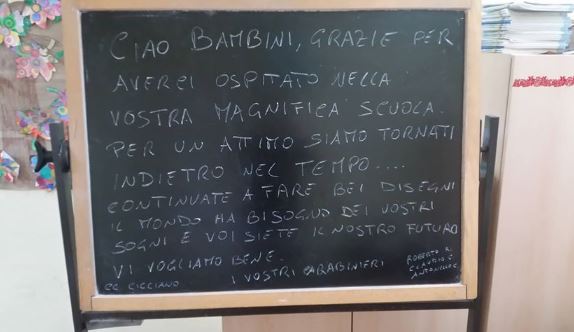 CIAO BAMBINI, GRAZIE PER
AVERCI OSPITATO NELLA
VOSTRA MAGNIFICA SCUOLA.
PER UN ATTIMO SIAMO TORNATI
INDIETRO NEL TEMPO....
CONTINUATE A FARE BEI DISEGNI
IL MONDO HA BISOGNO DEI VOSTRI
SOGNI E VOI SIETE IL NOSTRO FUTURO
VI VOGLIAMO BENE.
I VOSTRI CARABINIERI
CC CICCIANO
ROBERTO R.
CLAUDIO C
ANTONELLO C.